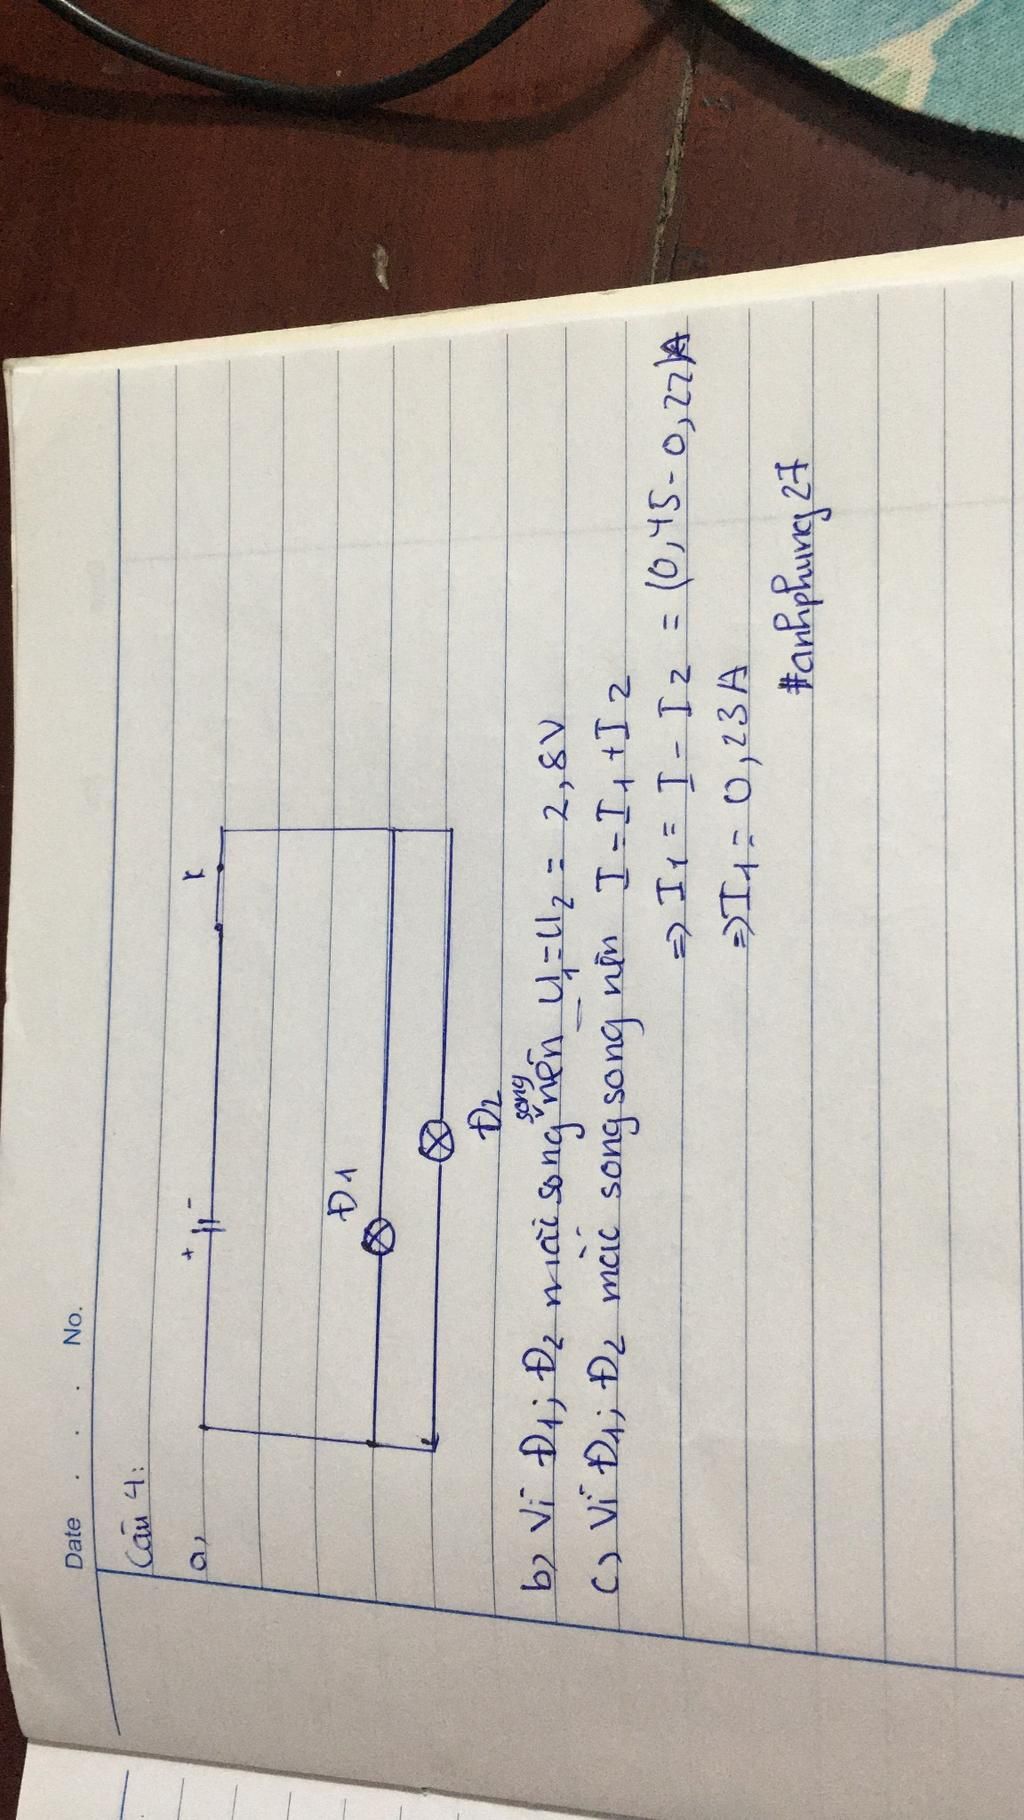 Date . . . No.
Câu 4:
a,
+ - K
Đ1
Đ2
song
b) Vì Đ1; Đ2 mắc song nên U1=U2 = 2,8V
c) Vì Đ1; Đ2 mắc song song nên I=I1+I2
=> I1 = I - I2 = (0,45-0,22)A
=> I1 = 0,23A
#anhphung27